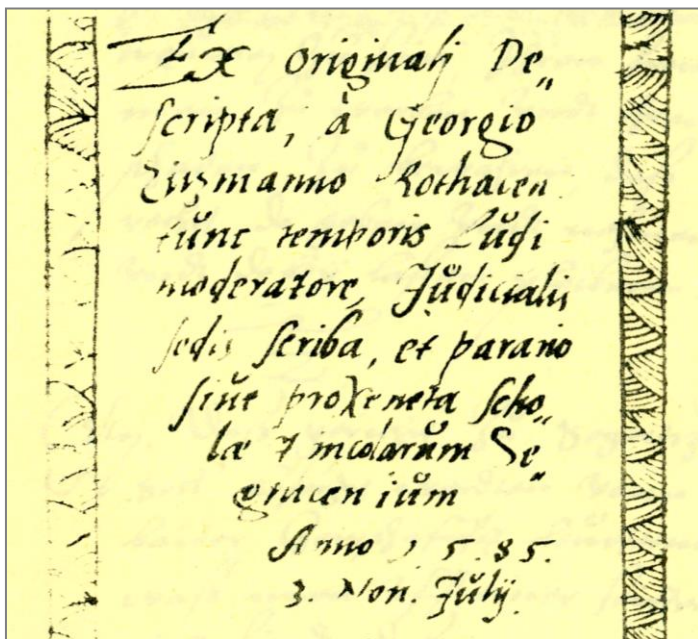 Ex Originali De„
scripta, à Georgio
Zismanno Rothacen
tunc temporis Ludi
moderatore, Judicialis
sedis scriba, et parario
siue proxeneta scho„
læ
Anno 1585.
3. Non. Julij.